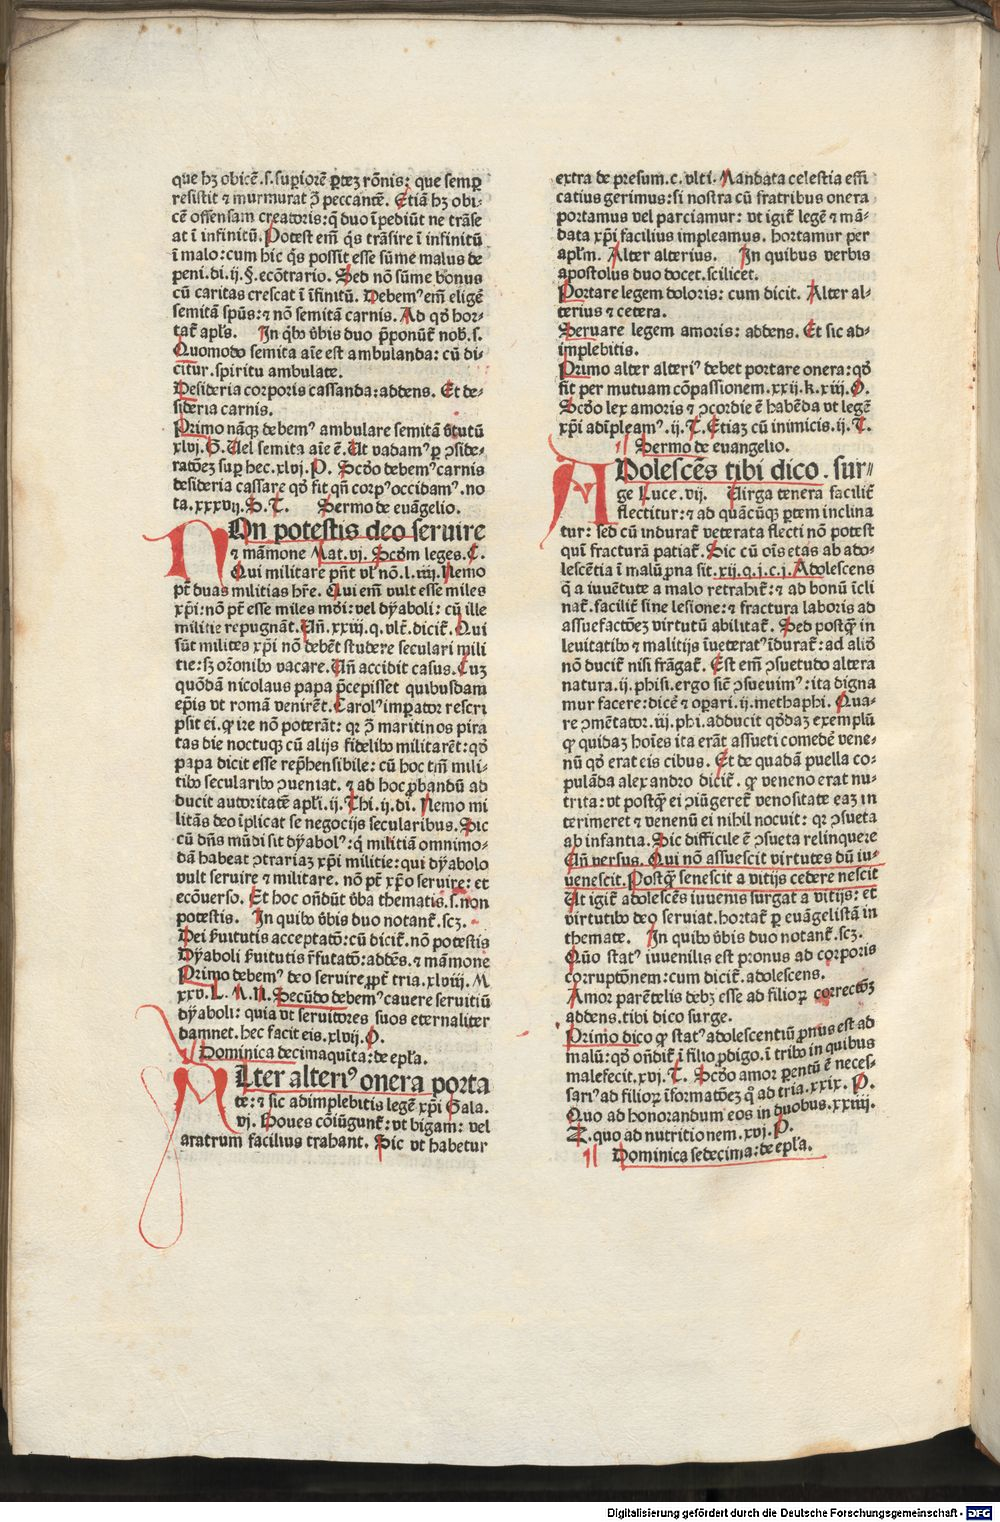 que hʒ obicē.s.supiorē ꝑteʒ rōnis: que semꝑ
resistit ⁊ murmurat ꝯ̄ peccantē. Etiā hʒ obi-
cē offensam creatoris: q̄ duo īpediūt ne trāse
at ī infinitū. Potest em̄ q̄s trāsire ī infinitū
ī malo: cum hic q̄s possit esse sūme malus de
peni. di. ij. §. ecōtrario. Sed nō sūme bonus
cū caritas crescat ī īfinitū. Debemꝰ em̄ eligē
semitā spūs: ⁊ nō semitā carnis. Ad qḋ hor-
tat̄ apl̄s. In q̄bꝰ v̄bis duo p̄ponūt̄ nob̄. s.
Quomodo semita aīe est ambulanda: cū di-
citur. spiritu ambulate.
Desideria corporis cassanda: addens. Et de-
sideria carnis.
Primo nāqꝫ debemꝰ ambulare semitā v̄tutū
xlvj. G. Uel semita aīe ē. Ut vadamꝰ ꝑ ꝯside-
ratōeʒ suꝑ hec. xlvj. P. Scḋo debemꝰ carnis
desideria cassare qḋ fit qn̄ corpꝰ occidamꝰ. no
ta. xxxvij. S. T. Sermo de euāgelio.
NOn potestis deo seruire
⁊ māmone Mat. vj. Scḋm leges. C.
Qui militare pn̄t vl̄ nō. l. iiij. Nemo
pt̄ duas militias hr̄e. Qui em̄ vult esse miles
xp̄i: nō pt̄ esse miles mūdi: vel dyaboli: cū ille
militie repugnāt. Un̄. xxiij. q. vlt̄. dicit̄. Qui
sūt milites xp̄i nō debēt studere seculari mili
tie: sʒ or̄onibꝰ vacare. Un̄ accidit casus. Cuʒ
quōdā nicolaus papa p̄cepisset quibusdam
ep̄is vt romā venirēt. Carolꝰ imꝑator rescri
psit ei. ꝙ ire nō poterāt: qꝛ ꝯ̄ maritinos pira
tas die noctuqꝫ cū alijs fidelibꝰ militarēt: qḋ
papa dicit esse rep̄hensibile: cū hoc tm̄ mili-
tibꝰ secularibꝰ ꝯueniat. ⁊ ad hoc ꝓbandū ad
ducit autoritatē apl̄i. ij. Thi. ij. di. Nemo mi
litās deo īplicat se negocijs secularibus. Sic
cū dn̄s mūdi sit dyabolꝰ: q̄ militiā omnimo-
dā habeat ꝯtrariaʒ xp̄i militie: qui dyabolo
vult seruire ⁊ militare. nō pt̄ xp̄o seruire: et
ecōuerso. Et hoc on̄dūt v̄ba thematis. s. non
potestis. In quibꝰ v̄bis duo notant̄. scʒ.
Dei ẜuitutis acceptatō: cū dicit̄. nō potestis
Dyaboli ẜuitutis r̄futatō: addēs. ⁊ māmone
Primo debemꝰ deo seruire ꝓpt̄ tria. xlviij. M
xxv. L. M. N. Secūdo debemꝰ cauere seruitiū
dyaboli: quia vt seruitores suos eternaliter
damnet. hec facit eis. xlvij. O.
Dominica decimaquīta: de epl̄a.
ALter alteriꝰ onera porta
te: ⁊ sic adimplebitis legē xp̄i Gala.
vj. Boues cōiūgunt̄: vt bigam: vel
aratrum facilius trahant. Sic vt habetur
extra de presum. c. vlti. Mandata celestia effi
catius gerimus: si nostra cū fratribus onera
portamus vel parciamur: vt igit̄ legē ⁊ mā-
data xp̄i facilius impleamus. hortamur per
apl̄m. Alter alterius. In quibus verbis
apostolus duo docet. scilicet.
Portare legem doloris: cum dicit. Alter al-
terius ⁊ cetera.
Seruare legem amoris: addens. Et sic ad-
implebitis.
Primo alter alteriꝰ debet portare onera: qḋ
fit per mutuam cōpassionem. xxij. k. xiij. O.
Scḋo lex amoris ⁊ ꝯcordie ē habēda vt legē
xp̄i adīpleamꝰ. ij. T. Etiaʒ cū inimicis. ij. T.
Sermo de euangelio.
ADolescēs tibi dico. sur-
ge Luce. vij. Uirga tenera facilit̄
flectitur: ⁊ ad quācūqꝫ ꝑtem inclina
tur: sed cū indurat̄ veterata flecti nō potest
quī fracturā patiat̄. Sic cū oīs etas ab ado-
lescētia ī malū ꝓna sit. xij. q. j. c. j. Adolescens
q̄ a iuuētute a malo retrahit̄: ⁊ ad bonū īcli
nat̄. facilit̄ sine lesione: ⁊ fractura laboris ad
assuefactōeʒ virtutū abilitat̄. Sed postꝙ̄ in
leuitatibꝰ ⁊ malitijs īueteratꝰ īdurat̄: ad aliḋ
nō ducit̄ nisi frāgat̄. Est em̄ ꝯsuetudo altera
natura. ij. phisi. ergo sic̄ ꝯsueuimꝰ: ita digna
mur facere: dicē ⁊ oꝑari. ij. methaphi. Qua-
re ꝯmētator. iij. phi. adducit qḋdaʒ exemplū
ꝙ quidaʒ hoīes ita erāt assueti comedē vene-
nū qḋ erat eis cibus. Et de quadā puella co-
pulāda alexandro dicit̄. ꝙ veneno erat nu-
trita: vt postꝙ̄ ei ꝯiūgeret̄ venositate eaʒ in
terimeret ⁊ venenū ei nihil nocuit: qꝛ ꝯsueta
ab infantia. Sic difficile ē ꝯsueta relinquere
Un̄ versus. Qui nō assuescit virtutes dū iu-
uenescit. Postꝙ̄ senescit a vitijs cedere nescit
Ut igit̄ adolescēs iuuenis surgat a vitijs: et
virtutibꝰ deo seruiat. hortat̄ ꝑ euāgelistā in
themate. In quibꝰ v̄bis duo notant̄. scʒ.
Quō statꝰ iuuenilis est pronus ad corporis
corruptōnem: cum dicit̄. adolescens.
Amor parētelis debʒ esse ad filioꝝ correctōʒ
addens. tibi dico surge.
Primo dico ꝙ statꝰ adolescentiū ꝓnus est ad
malū: qḋ on̄dit̄ ī filio ꝓdigo. ī tribꝰ in quibus
malefecit. xvj. T. Scḋo amor ꝑentū ē neces-
sariꝰ ad filioꝝ īformatōeʒ q̄ ad tria. xxix. P.
Quo ad honorandum eos in duobus. xxiiij.
Z. quo ad nutritionem. xvj. P.
Dominica sedecima: de epl̄a.
Digitalisierung gefördert durch die Deutsche Forschungsgemeinschaft - DFG